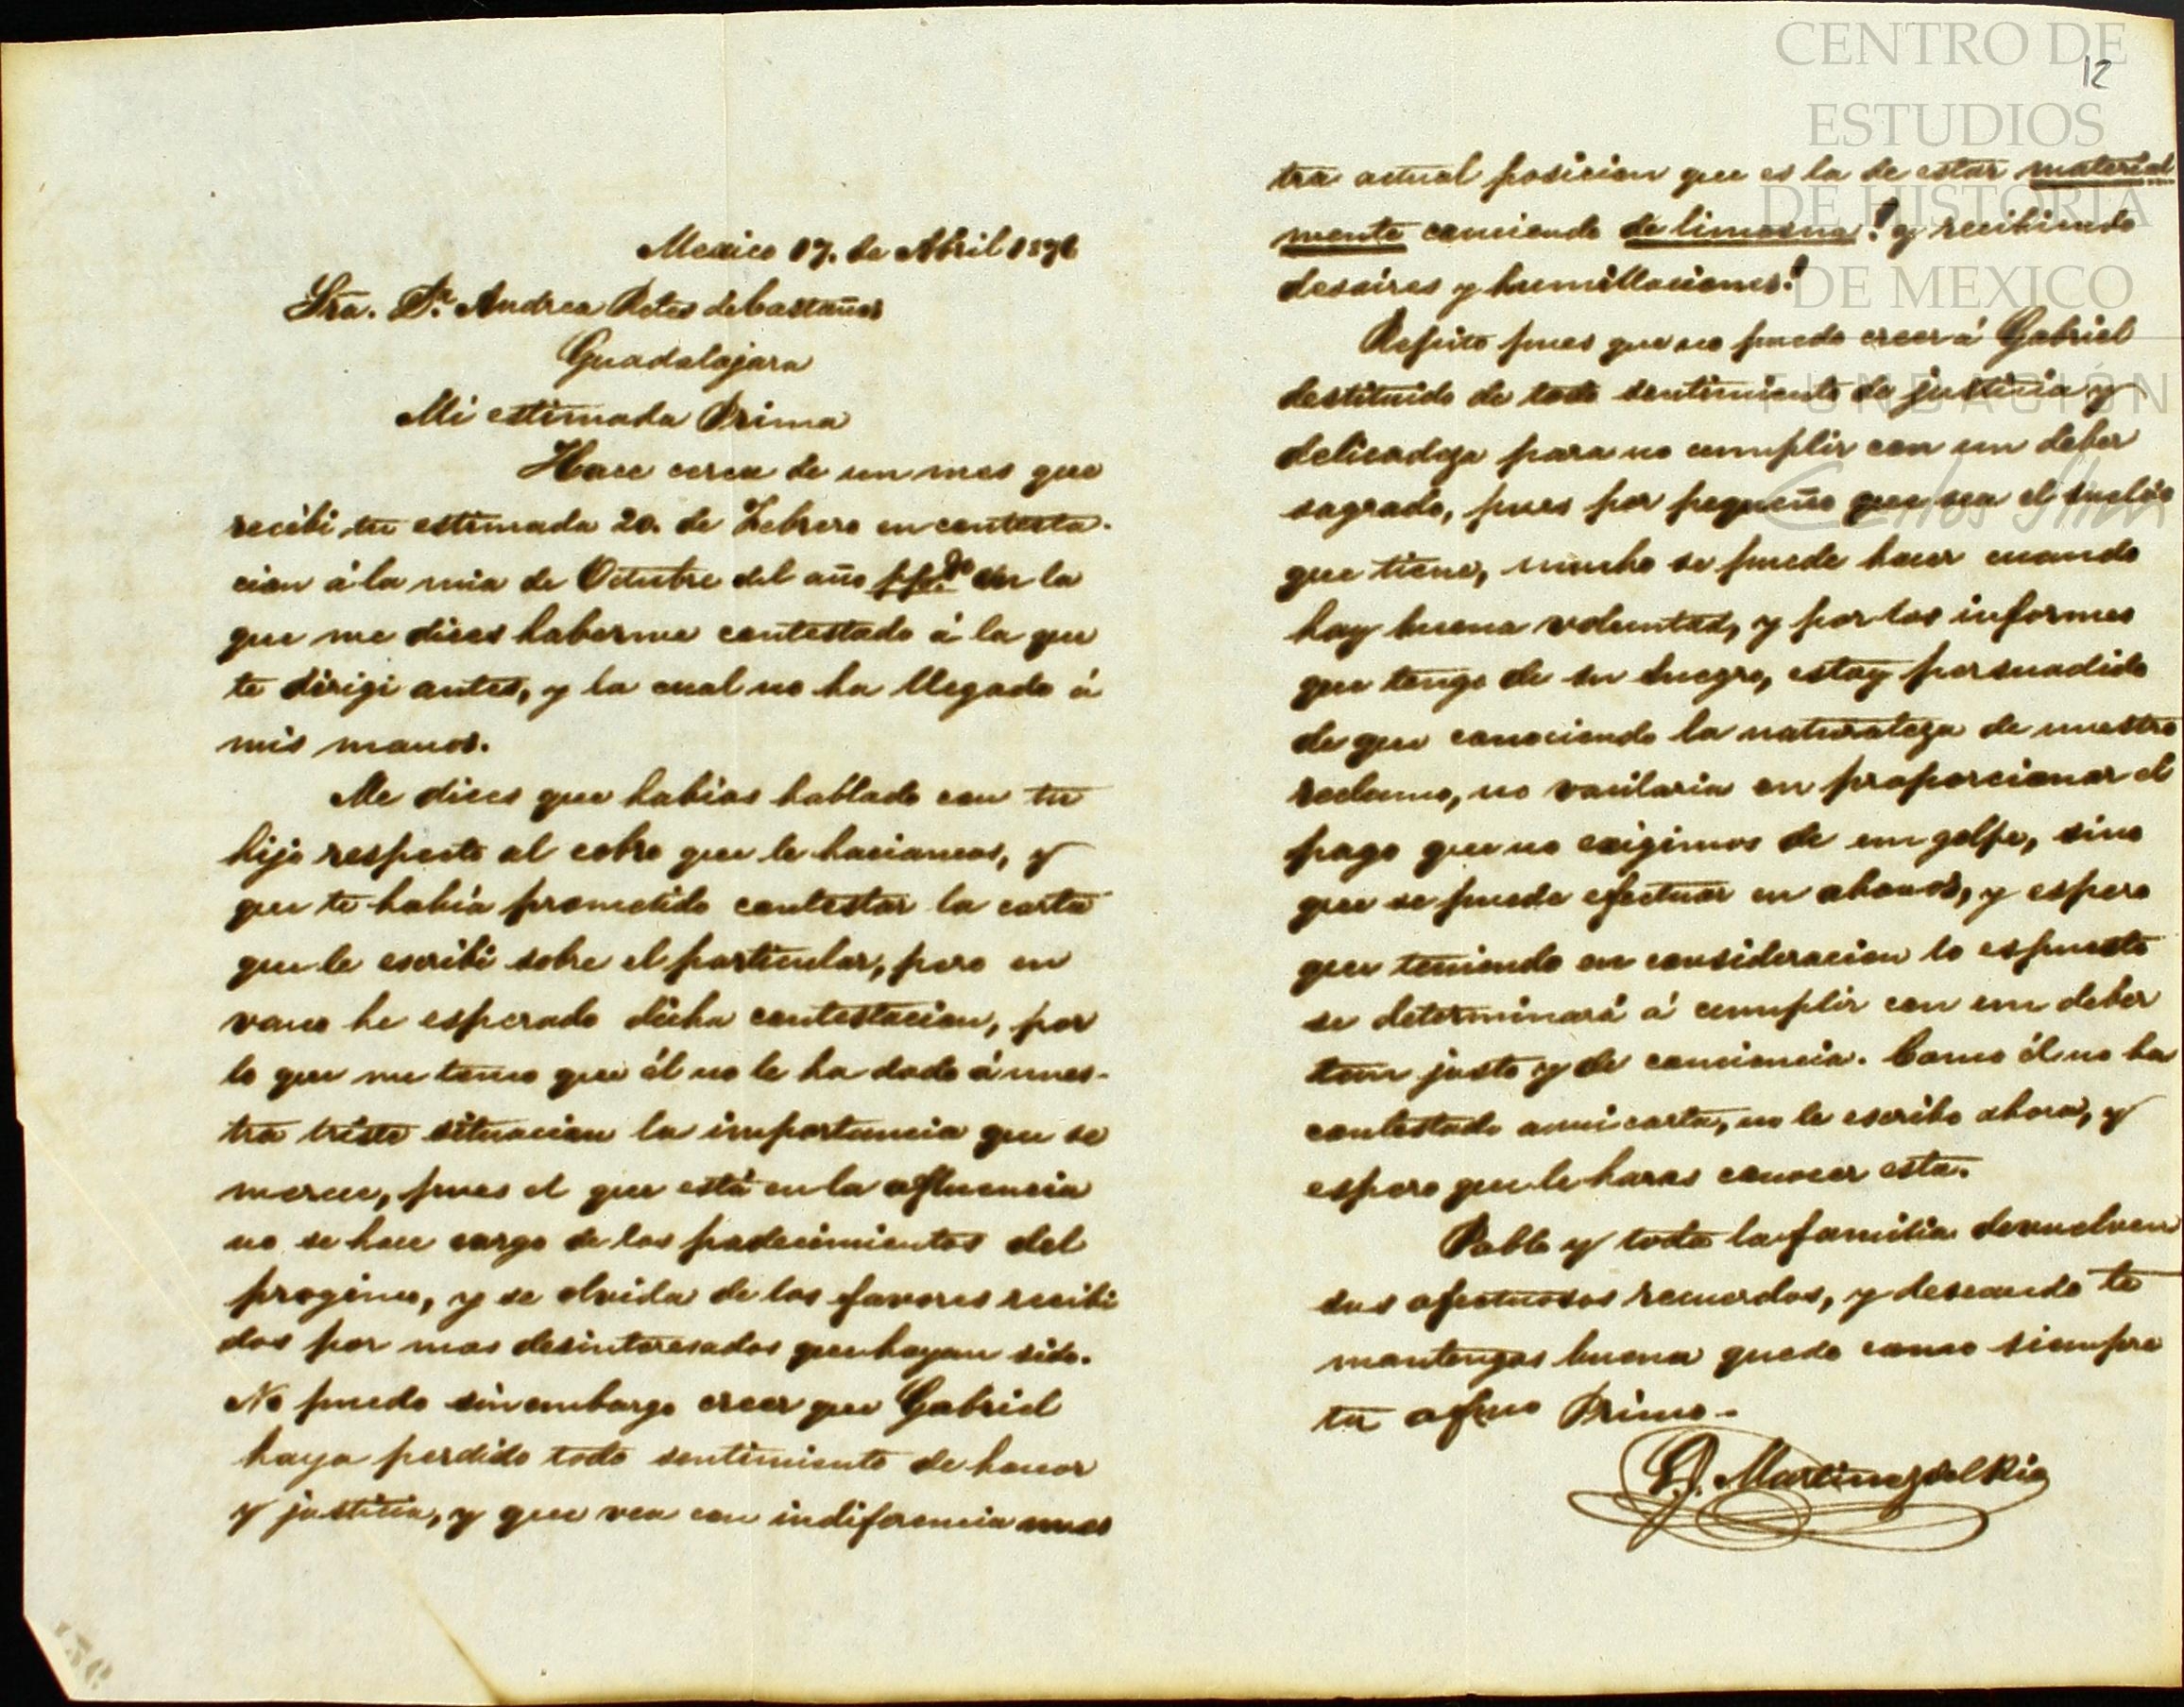 12
Mexico 17. de Abril 1876
Sra. Da. Andrea Retes de Castaños
Guadalajara
Mi estimada Prima
Hace cerca de un mes que
recibi tu estimada 20. de Febrero en contesta-
cion á la mia de Octubre del año ppdo. en la
que me dices haberme contestado á la que
te dirigi antes, y la cual no ha llegado á
mis manos.
Me dices que habias hablado con tu
hijo respecto al cobro que le haciamos, y
que te habia prometido contestar la carta
que le escribi sobre el particular, pero en
vano he esperado dicha contestacion, por
lo que me temo que él no le ha dado á nues-
tra triste situacion la importancia que se
merece, pues el que está en la afluencia
no se hace cargo de los padecimientos del
progimo, y se olvida de los favores recibi
dos por mas desinteresados que hayan sido.
No puedo sin embargo creer que Gabriel
haya perdido todo sentimiento de honor
y justicia, y que vea con indiferencia nues
tra actual posicion que es la de estar material
mente comiendo de limosna! y recibiendo
desaires y humillaciones!
Repito pues que no puedo creer á Gabriel
destituido de todo sentimiento de justicia y
delicadeza para no cumplir con un deber
sagrado, pues por pequeño que sea el sueldo
que tiene, mucho se puede hacer cuando
hay buena voluntad, y por los informes
que tengo de su suegro, estoy persuadido
de que conociendo la naturaleza de nuestro
reclamo, no vacilaria en proporcionar el
pago que no exigimos de un golpe, sino
que se puede efectuar en abonos, y espero
que teniendo en consideracion lo espuesto
se determinará á cumplir con un deber
tan justo y de conciencia. Como él no ha
contestado a mi carta, no le escribo ahora, y
espero que le haras conocer esta.
Pablo y toda la familia devuelven
sus afectuosos recuerdos, y deseando te
mantengas buena quedo como siempre
tu afmo Primo.
Martinez del Rio
CENTRO DE
ESTUDIOS
DE HISTORIA
DE MEXICO
FUNDACIÓN
Carlos Slim